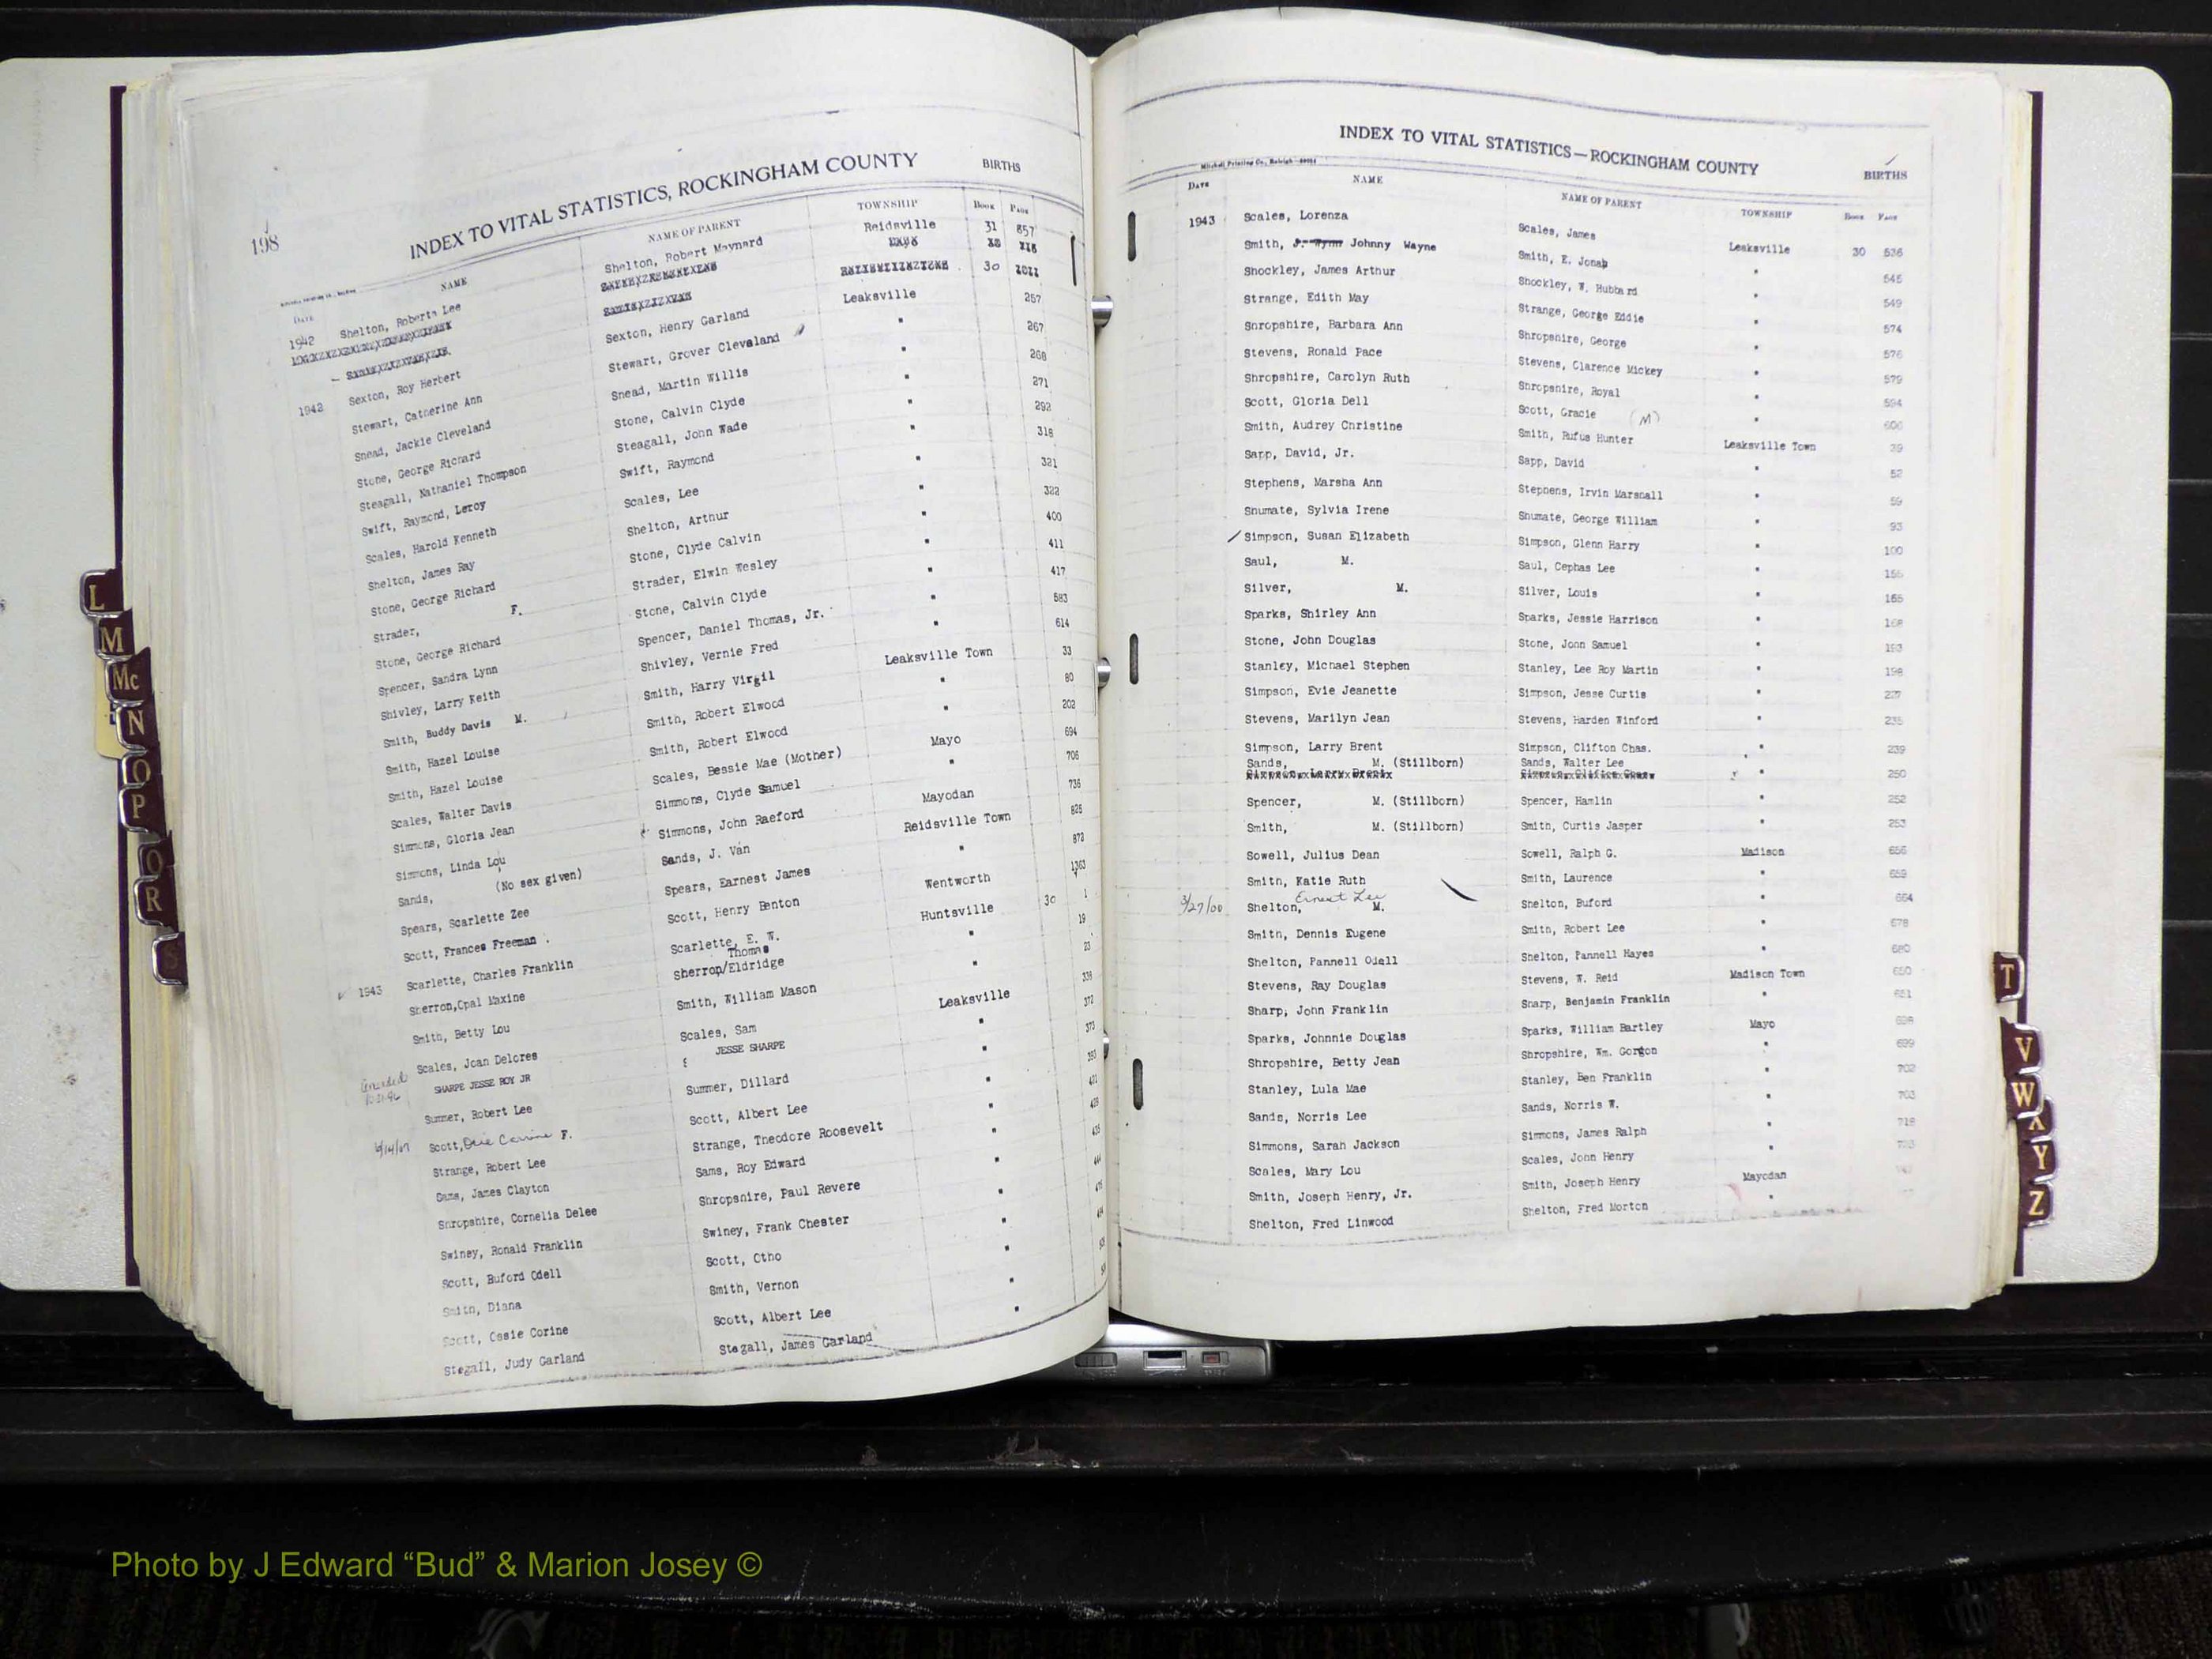 198
INDEX TO VITAL STATISTICS, ROCKINGHAM COUNTY BIRTHS
DATE NAME NAME OF PARENT TOWNSHIP BOOK PAGE
1942 Shelton, Roberta Lee Shelton, Robert Maynard Reidsville 31 857
30
1942 Sexton, Roy Herbert Sexton, Henry Garland Leaksville 257
Stewart, Catherine Ann Stewart, Grover Cleveland " 267
Snead, Jackie Cleveland Snead, Martin Willis " 268
Stone, George Richard Stone, Calvin Clyde " 271
Steagall, Nathaniel Thompson Steagall, John Wade " 292
Swift, Raymond, Leroy Swift, Raymond " 318
Scales, Harold Kenneth Scales, Lee " 321
Shelton, James Ray Shelton, Arthur " 322
Stone, George Richard Stone, Clyde Calvin " 400
Strader, F. Strader, Elwin Wesley " 411
Stone, George Richard Stone, Calvin Clyde " 417
Spencer, Sandra Lynn Spencer, Daniel Thomas, Jr. " 583
Shivley, Larry Keith Shivley, Vernie Fred " 614
Smith, Buddy Davis M. Smith, Harry Virgil Leaksville Town 33
Smith, Hazel Louise Smith, Robert Elwood " 80
Smith, Hazel Louise Smith, Robert Elwood " 202
Scales, Walter Davis Scales, Bessie Mae (Mother) Mayo 694
Simmons, Gloria Jean Simmons, Clyde Samuel " 706
Simmons, Linda Lou Simmons, John Raeford Mayodan 736
Sands, (No sex given) Sands, J. Van Reidsville Town 825
Spears, Scarlette Zee Spears, Earnest James " 872
Scott, Frances Freeman Scott, Henry Benton Wentworth 1363
1943 Scarlette, Charles Franklin Scarlette, E. W. Huntsville 30 1
Sherron,Opal Maxine Sherron/Eldridge Thomas " 19
Smith, Betty Lou Smith, William Mason " 23
Scales, Joan Delores Scales, Sam Leaksville
SHARPE JESSE ROY JR JESSE SHARPE "
Summer, Robert Lee Summer, Dillard "
Scott, F. Scott, Albert Lee "
Strange, Robert Lee Strange, Theodore Roosevelt "
Sams, James Clayton Sams, Roy Edward "
Shropshire, Cornelia Delee Shropshire, Paul Revere "
Swiney, Ronald Franklin Swiney, Frank Chester "
Scott, Buford Odell Scott, Otho "
Smith, Diana Smith, Vernon "
Scott, Ossie Corine Scott, Albert Lee "
Stegall, Judy Garland Stegall, James Garland "
INDEX TO VITAL STATISTICS—ROCKINGHAM COUNTY BIRTHS
Mitchell Printing Co., Raleigh
DATE NAME NAME OF PARENT TOWNSHIP BOOK PAGE
1943 Scales, Lorenza Scales, James Leaksville 30 536
Smith, J. Wynn Johnny Wayne Smith, E. Jonah " 545
Shockley, James Arthur Shockley, W. Hubbard " 549
Strange, Edith May Strange, George Eddie " 574
Shropshire, Barbara Ann Shropshire, George " 576
Stevens, Ronald Pace Stevens, Clarence Mickey " 579
Shropshire, Carolyn Ruth Shropshire, Royal " 594
Scott, Gloria Dell Scott, Gracie (M) " 606
Smith, Audrey Christine Smith, Rufus Hunter Leaksville Town 39
Sapp, David, Jr. Sapp, David " 52
Stephens, Marsha Ann Stephens, Irvin Marshall " 59
Shumate, Sylvia Irene Shumate, George William " 93
Simpson, Susan Elizabeth Simpson, Glenn Harry " 100
Saul, M. Saul, Cephas Lee " 155
Silver, M. Silver, Louis " 165
Sparks, Shirley Ann Sparks, Jessie Harrison " 168
Stone, John Douglas Stone, John Samuel " 193
Stanley, Michael Stephen Stanley, Lee Roy Martin " 198
Simpson, Evie Jeanette Simpson, Jesse Curtis " 227
Stevens, Marilyn Jean Stevens, Harden Winford " 235
Simpson, Larry Brent Simpson, Clifton Chas. " 239
Sands, M. (Stillborn) Sands, Walter Lee " 250
Spencer, M. (Stillborn) Spencer, Hamlin " 252
Smith, M. (Stillborn) Smith, Curtis Jasper " 253
Sowell, Julius Dean Sowell, Ralph G. Madison 656
Smith, Katie Ruth Smith, Laurence " 659
3/27/00 Shelton, Ernest Lee M. Shelton, Buford " 664
Smith, Dennis Eugene Smith, Robert Lee " 678
Shelton, Pannell Odell Shelton, Pannell Hayes " 680
Stevens, Ray Douglas Stevens, W. Reid Madison Town 650
Sharp, John Franklin Sharp, Benjamin Franklin " 651
Sparks, Johnnie Douglas Sparks, William Bartley Mayo 698
Shropshire, Betty Jean Shropshire, Wm. Gordon " 699
Stanley, Lula Mae Stanley, Ben Franklin " 702
Sands, Norris Lee Sands, Norris W. " 703
Simmons, Sarah Jackson Simmons, James Ralph " 718
Scales, Mary Lou Scales, John Henry "
Smith, Joseph Henry, Jr. Smith, Joseph Henry Mayodan
Shelton, Fred Linwood Shelton, Fred Morton "
L
M
Mc
N
O
P
Q
R
S
T
V
W
X
Y
Z
Photo by J Edward “Bud” & Marion Josey ©